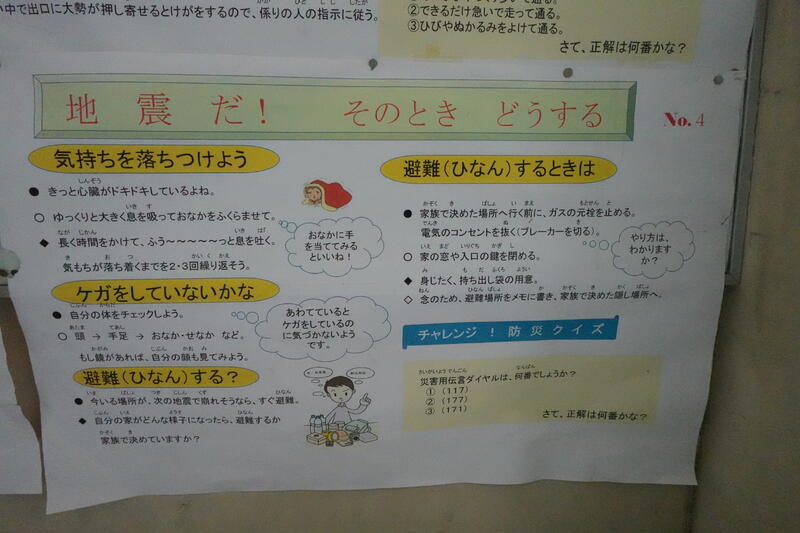 い中で出口に大勢が押し寄せるとけがをするので、係りの人の指示に従う。
②できるだけ急いで走って通る。
③ひびやぬかるみをよけて通る。
さて、正解は何番かな？
地震だ！ そのとき どうする
No. 4
気持ちを落ちつけよう
● きっと心臓がドキドキしているよね。
○ ゆっくりと大きく息を吸っておなかをふくらませて。
◆ 長く時間をかけて、ふう～～～～～っと息を吐く。
気もちが落ち着くまでを2・3回繰り返そう。
おなかに手
を当ててみる
といいね！
ケガをしていないかな
● 自分の体をチェックしよう。
○ 頭 → 手足 → おなか・せなか など。
もし鏡があれば、自分の顔も見てみよう。
あわてていると
ケガをしているの
に気づかないよう
です。
避難（ひなん）する？
● 今いる場所が、次の地震で崩れそうなら、すぐ避難。
◆ 自分の家がどんな様子になったら、避難するか
家族で決めていますか？
避難（ひなん）するときは
● 家族で決めた場所へ行く前に、ガスの元栓を止める。
電気のコンセントを抜く（ブレーカーを切る）。
○ 家の窓や入口の鍵を閉める。
◆ 身じたく、持ち出し袋の用意。
◇ 念のため、避難場所をメモに書き、家族で決めた隠し場所へ。
やり方は、
わかります
か？
チャレンジ ！ 防災クイズ
災害用伝言ダイヤルは、何番でしょうか？
① （117）
② （177）
③ （171）
さて、正解は何番かな？